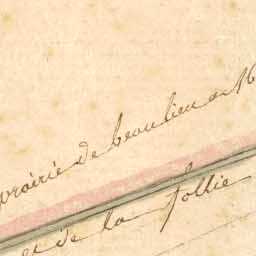 prairie de beaulieu a 16
et de la follie